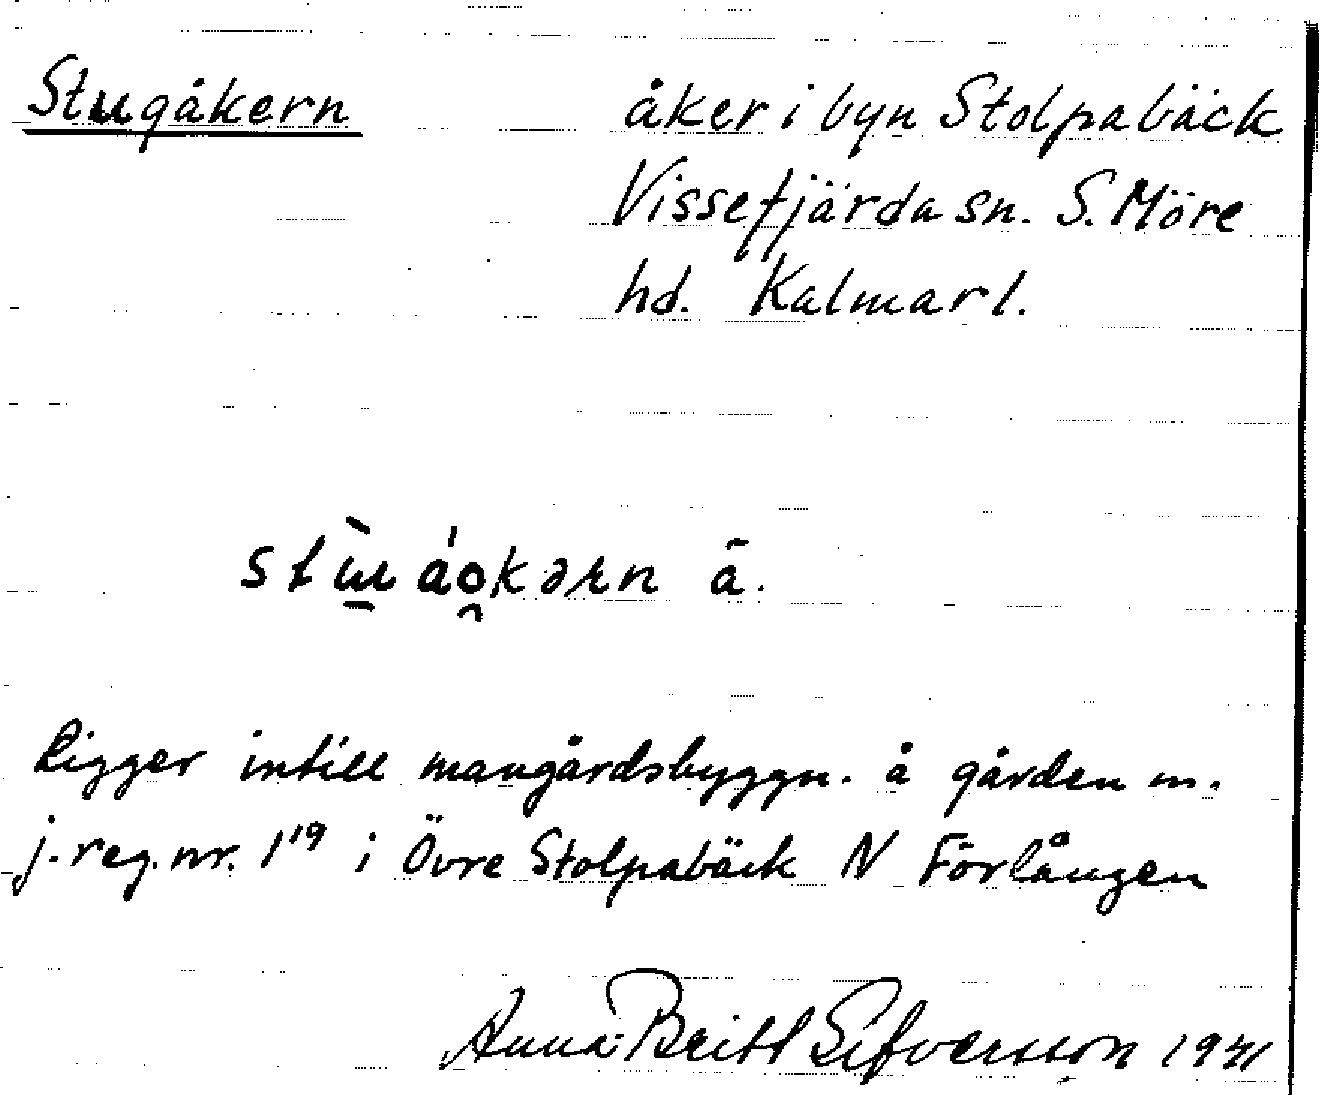 Stugåkern åker i byn Stolpabäck
Vissefjärda sn. S. Möre
hd. Kalmar l.
ā.
Ligger intill mangårdsbyggn. å gården m.
j. reg. nr. 1¹⁹ i Övre Stolpabäck N Förlången
Anna-Britt Sifversson 1941